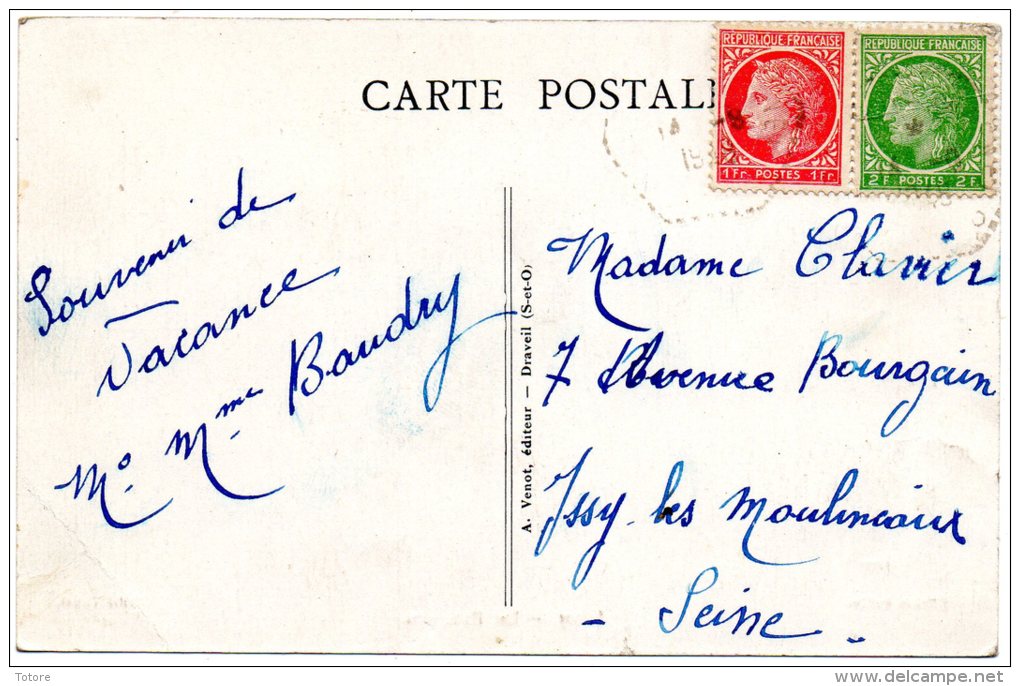 CARTE POSTALE
RÉPUBLIQUE FRANÇAISE
1 Fr POSTES 1 Fr
RÉPUBLIQUE FRANÇAISE
2 F. POSTES 2 F.
Souvenir de
Vacance
Mr. Mme Baudry
A. Venot, éditeur — Draveil (S-et-O)
Madame Clavier
7 Avenue Bourgain
Issy les Moulineaux
- Seine -
Totore
www.delcampe.net